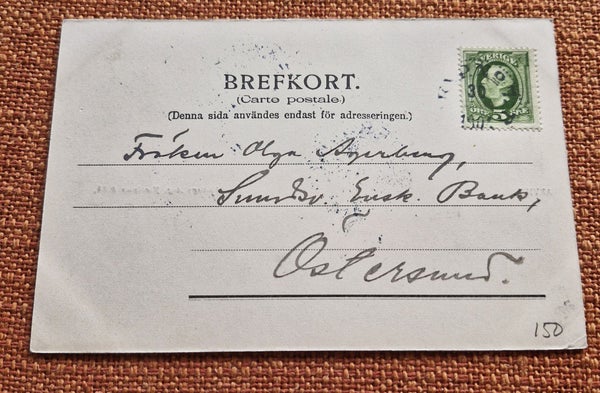 SVERIGE
BREFKORT.
(Carte postale.)
(Denna sida användes endast för adresseringen.)
Fröken Olga Agerberg,
Ensk. Bank,
Östersund.
150